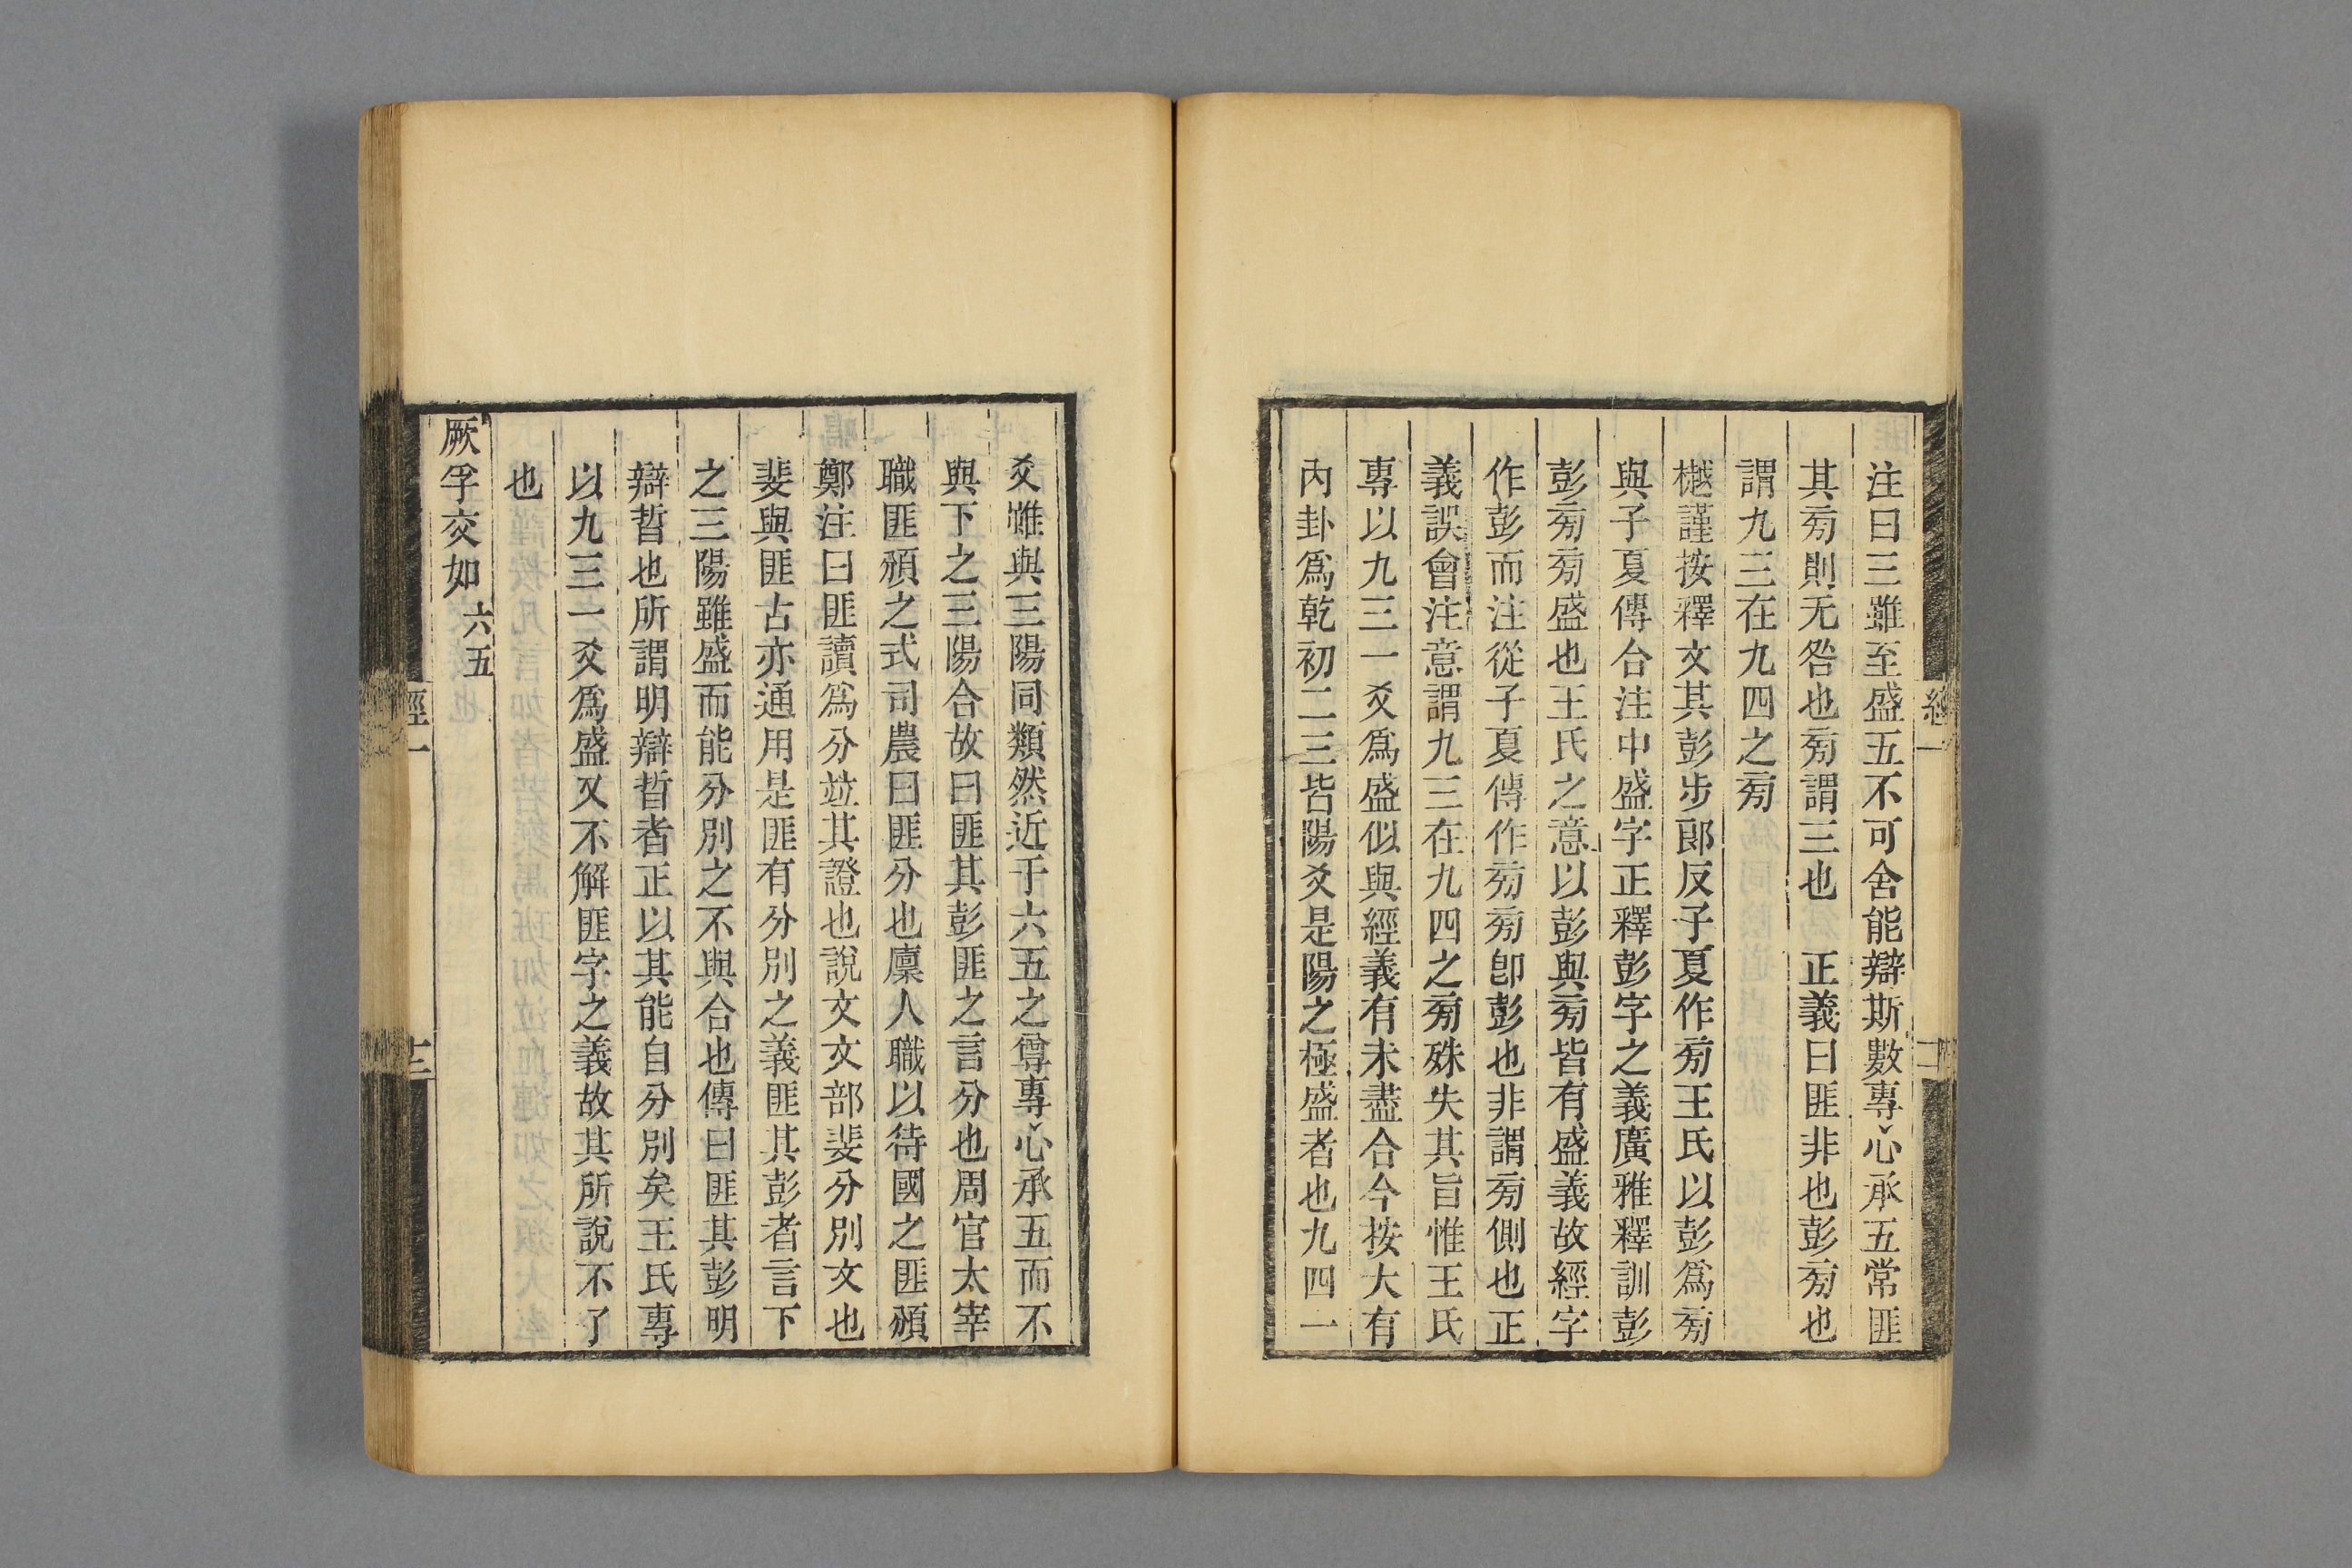 注曰三雖至盛五不可舍能辯斯數專心承五常匪
其㫄則无咎也㫄謂三也　正義曰匪非也彭㫄也
謂九三在九四之㫄
樾謹按釋文其彭步郎反子夏作㫄王氏以彭爲㫄
與子夏傳合注中盛字正釋彭字之義廣雅釋訓彭
彭㫄㫄盛也王氏之意以彭與㫄皆有盛義故經字
作彭而注從子夏傳作㫄㫄卽彭也非謂㫄側也正
義誤會注意謂九三在九四之㫄殊失其旨惟王氏
專以九三一爻爲盛似與經義有未盡合今按大有
內卦爲乾初二三皆陽爻是陽之極盛者也九四一
爻雖與三陽同類然近于六五之尊專心承五而不
與下之三陽合故曰匪其彭匪之言分也周官太宰
職匪頒之式司農曰匪分也廩人職以待國之匪頒
鄭注曰匪讀爲分竝其證也說文文部斐分別文也
斐與匪古亦通用是匪有分別之義匪其彭者言下
之三陽雖盛而能分別之不與合也傳曰匪其彭明
辯晢也所謂明辯晢者正以其能自分別矣王氏專
以九三一爻爲盛又不解匪字之義故其所說不了
也
厥孚交如 六五
經一
十二